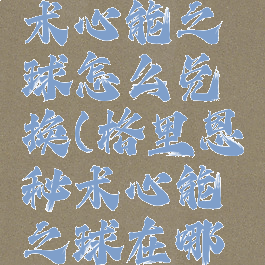 术心能之
球怎么兑
换(格里恩
秘术心能
之球在哪